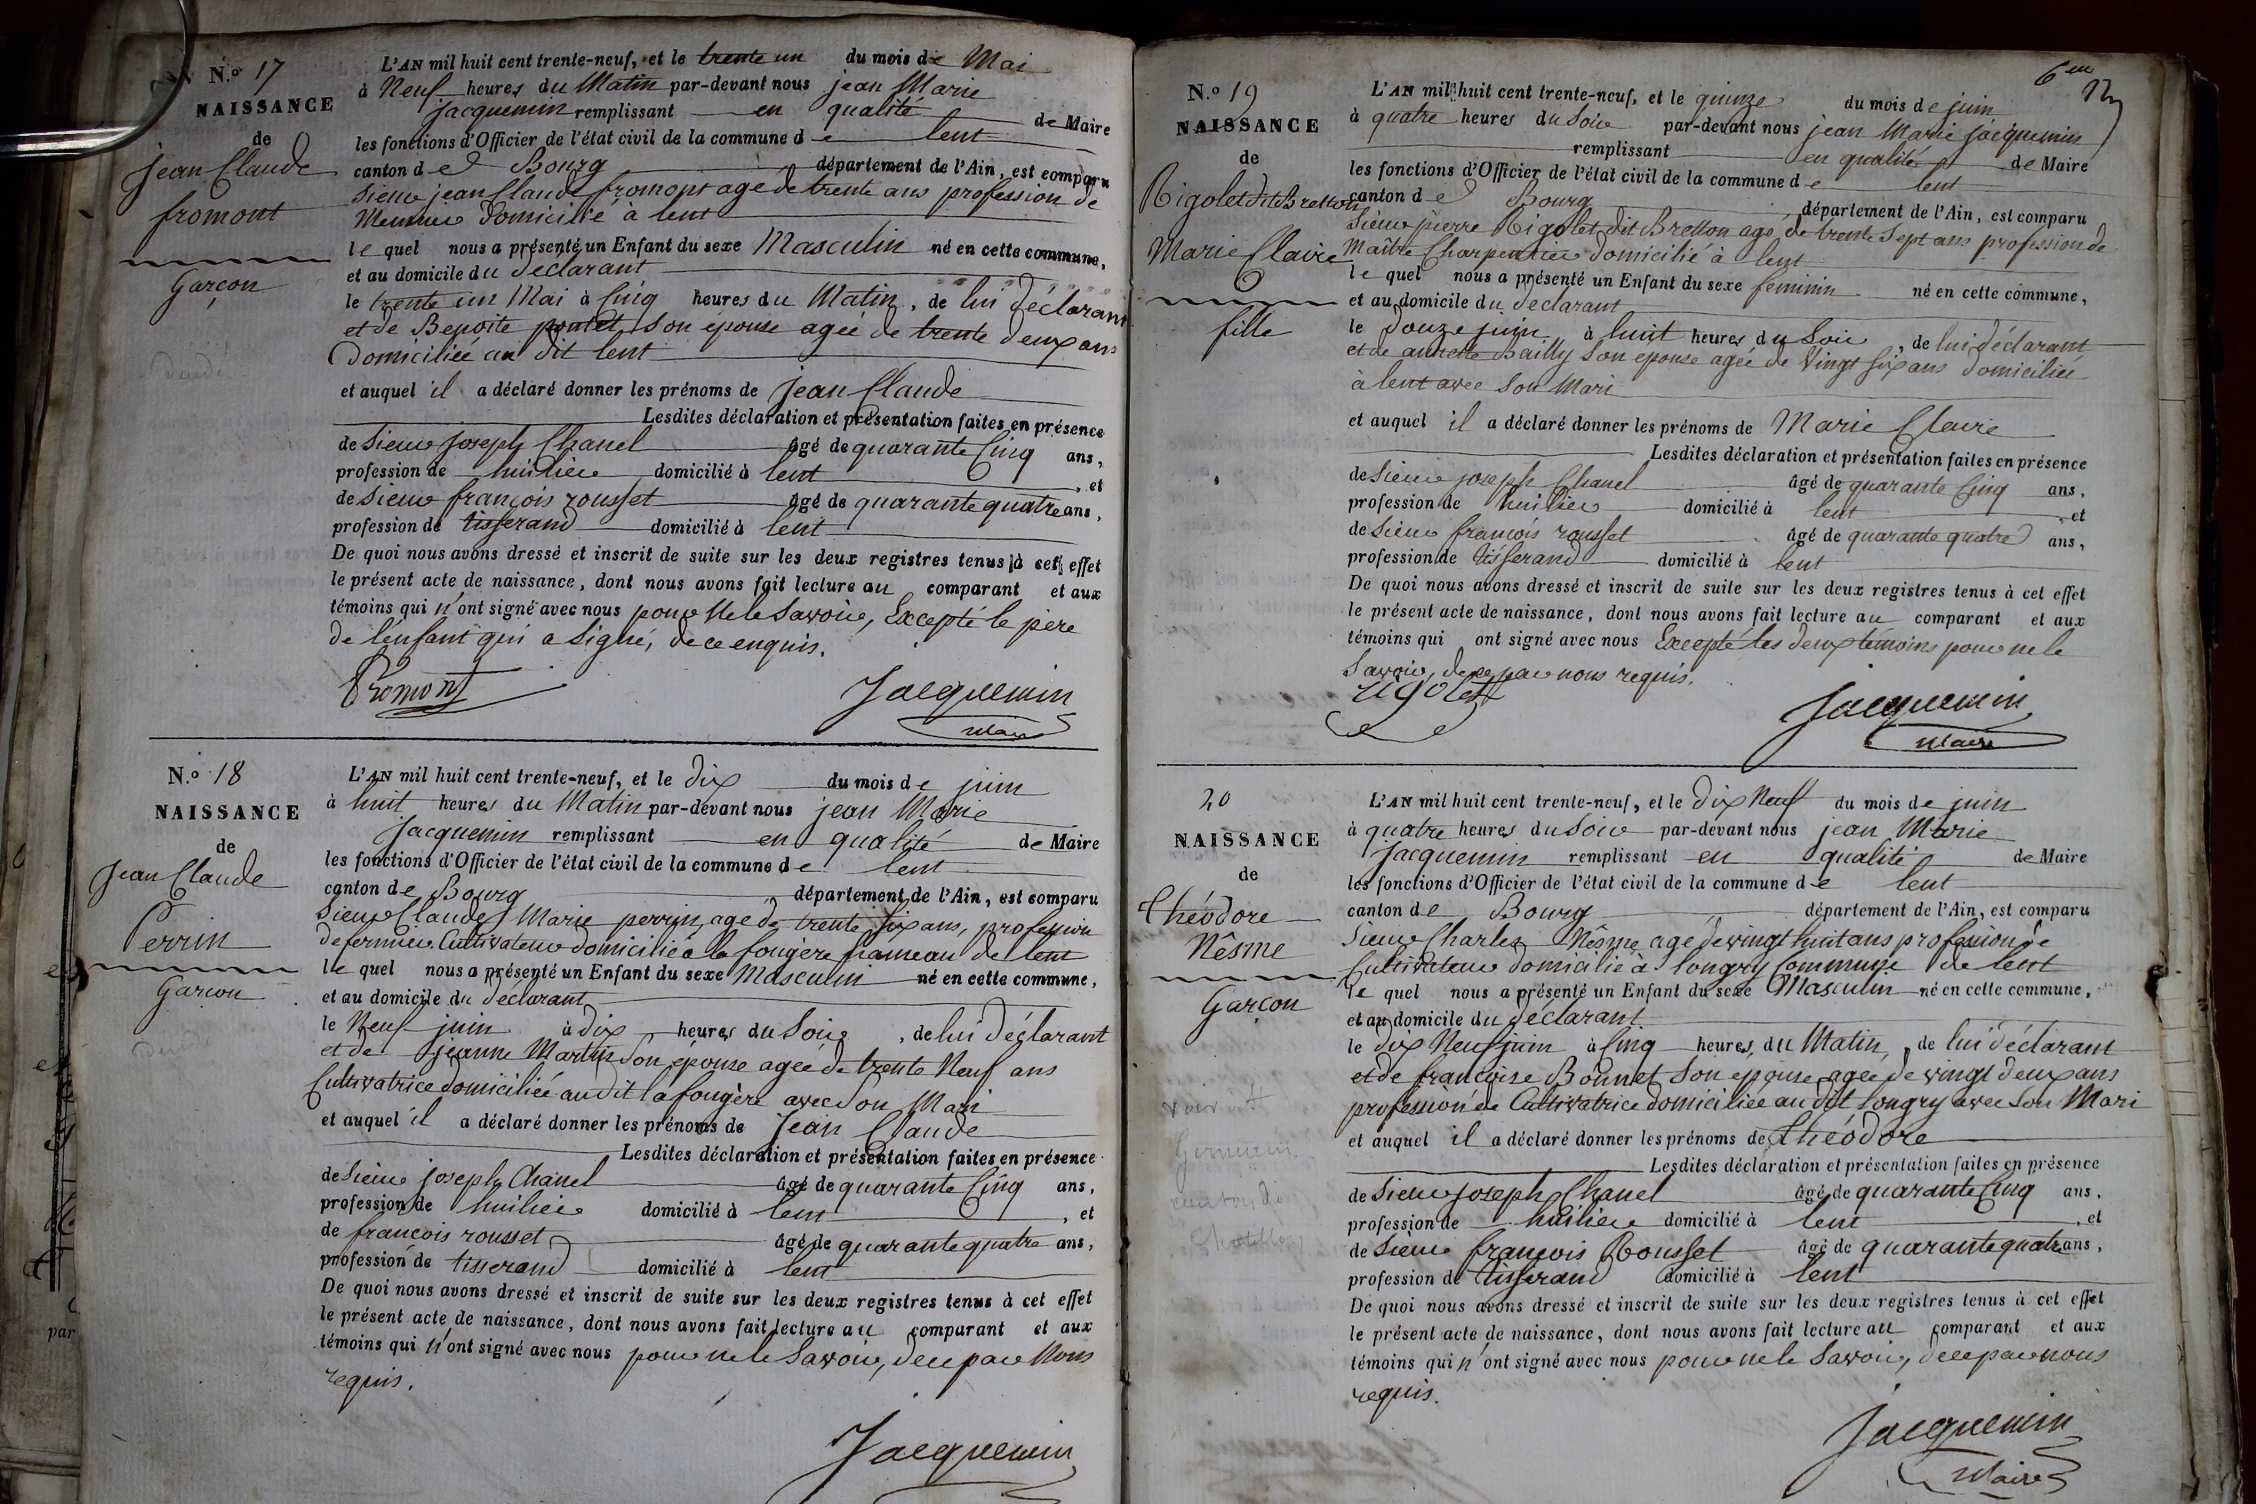 N.º 17
NAISSANCE
de
jean Claude
fromont
Garçon
L'AN mil huit cent trente-neuf, et le trente un du mois de Mai
à Neuf heures du Matin par-devant nous jean Marie
jacquemin remplissant en qualité de Maire
les fonctions d'Officier de l'état civil de la commune de lent
canton de Bourg département de l'Ain, est comparu
Sieur jean Claude fromont agé de trente ans profession de
Meunier domicilié à lent
le quel nous a présenté un Enfant du sexe Masculin né en cette commune,
et au domicile du déclarant
le trente un Mai à Cinq heures du Matin, de lui déclarant
et de Benoite son épouse agée de trente deux ans
domiciliée au dit lent
et auquel il a déclaré donner les prénoms de jean Claude
Lesdites déclaration et présentation faites en présence
de Sieur joseph Chanel âgé de quarante Cinq ans,
profession de huilier domicilié à lent, et
de Sieur françois rousset âgé de quarante quatre ans,
profession de tisserand domicilié à lent
De quoi nous avons dressé et inscrit de suite sur les deux registres tenus à cet effet
le présent acte de naissance, dont nous avons fait lecture au comparant et aux
témoins qui n'ont signé avec nous pour ne le Savoir, Excepté le père
de l'enfant qui a Signé, de ce enquis.
Fromont Jacquemin
Maire
N.º 18
NAISSANCE
de
Jean Claude
Perrin
Garçon
L'AN mil huit cent trente-neuf, et le dix du mois de juin
à huit heures du Matin par-devant nous jean Marie
Jacquemin remplissant en qualité de Maire
les fonctions d'Officier de l'état civil de la commune de lent
canton de Bourg département de l'Ain, est comparu
Sieur Claude Marie perrin agé de trente six ans, profession
de fermier Cultivateur domicilié à la fougère hameau de lent
le quel nous a présenté un Enfant du sexe Masculin né en cette commune,
et au domicile du déclarant
le Neuf juin à dix heures du Soir, de lui déclarant
et de jeanne Martin Son épouse agée de trente Neuf ans
Cultivatrice domiciliée au dit la fougère avec Son Mari
et auquel il a déclaré donner les prénoms de Jean Claude
Lesdites déclaration et présentation faites en présence
de Sieur joseph Chanel âgé de quarante Cinq ans,
profession de huilier domicilié à lent, et
de françois rousset âgé de quarante quatre ans,
profession de tisserand domicilié à lent
De quoi nous avons dressé et inscrit de suite sur les deux registres tenus à cet effet
le présent acte de naissance, dont nous avons fait lecture au comparant et aux
témoins qui n'ont signé avec nous pour ne le Savoir, de ce par Nous
requis.
Jacquemin
6em
N.º 19
NAISSANCE
de
Rigolet dit Bretton
Marie Claire
fille
L'AN mil huit cent trente-neuf, et le quinze du mois de juin
à quatre heures du Soir par-devant nous jean Marie jacquemin
remplissant en qualité de Maire
les fonctions d'Officier de l'état civil de la commune de lent
canton de Bourg département de l'Ain, est comparu
Sieur pierre Rigolet dit Bretton agé de trente Sept ans profession de
Maître Charpentier domicilié à lent
le quel nous a présenté un Enfant du sexe féminin né en cette commune,
et au domicile du déclarant
le douze juin à huit heures du Soir, de lui déclarant
et de annette Bailly Son epouse agée de Vingt Six ans domiciliée
à lent avec Son Mari
et auquel il a déclaré donner les prénoms de Marie Claire
Lesdites déclaration et présentation faites en présence
de Sieur joseph Chanel âgé de quarante Cinq ans,
profession de huilier domicilié à lent et
de Sieur françois rousset âgé de quarante quatre ans,
profession de tisserand domicilié à lent
De quoi nous avons dressé et inscrit de suite sur les deux registres tenus à cet effet
le présent acte de naissance, dont nous avons fait lecture au comparant et aux
témoins qui ont signé avec nous Excepté les deux témoins pour ne le
Savoir, de ce par nous requis.
rigolet Jacquemin
Maire
20
NAISSANCE
de
théodore
Nêsme
Garçon
L'AN mil huit cent trente-neuf, et le dix Neuf du mois de juin
à quatre heures du Soir par-devant nous jean Marie
Jacquemin remplissant en qualité de Maire
les fonctions d'Officier de l'état civil de la commune de lent
canton de Bourg département de l'Ain, est comparu
Sieur Charles Nêsme agé de vingt huit ans profession de
Cultivateur domicilié à longry Commune de lent
le quel nous a présenté un Enfant du sexe Masculin né en cette commune,
et au domicile du déclarant
le dix Neuf juin à Cinq heures du Matin, de lui déclarant
et de françoise Bonnet Son epouse agee de vingt deux ans
profession de Cultivatrice domiciliée au dit longry avec Son Mari
et auquel il a déclaré donner les prénoms de théodore
Lesdites déclaration et présentation faites en présence
de Sieur joseph Chanel âgé de quarante Cinq ans,
profession de huilier domicilié à lent, et
de Sieur françois Rousset âgé de quarante quatre ans,
profession de tisserand domicilié à lent
De quoi nous avons dressé et inscrit de suite sur les deux registres tenus à cet effet
le présent acte de naissance, dont nous avons fait lecture au comparant et aux
témoins qui n'ont signé avec nous pour ne le Savoir, de ce par nous
requis.
Jacquemin
Maire